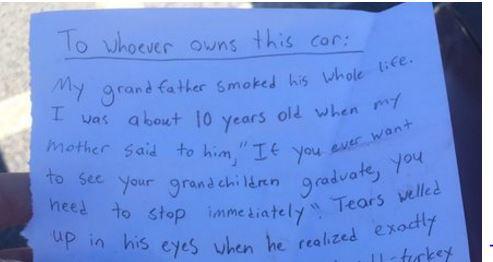 To whoever owns this car:
My grandfather smoked his whole life.
I was about 10 years old when my
mother said to him, "If you ever want
to see your grandchildren graduate, you
need to stop immediately". Tears welled
up in his eyes when he realized exactly
turkey